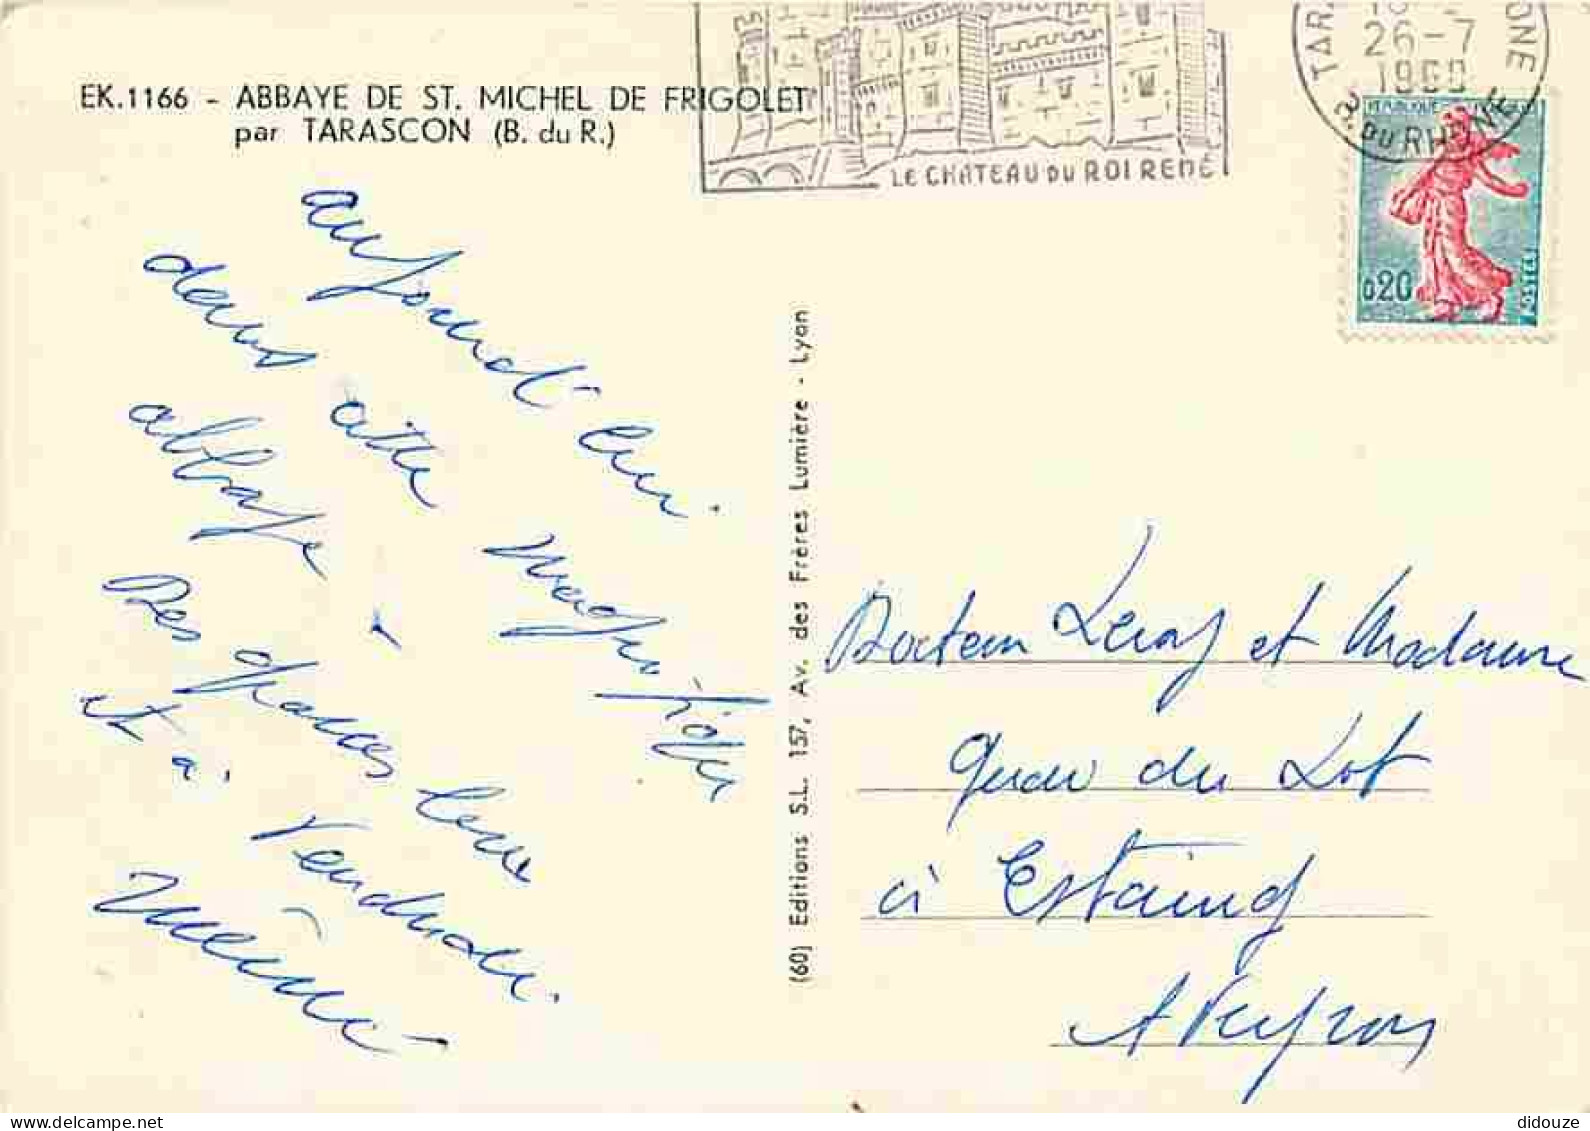 EK.1166 - ABBAYE DE ST. MICHEL DE FRIGOLET
par TARASCON (B. du R.)
LE CHÂTEAU DU ROI RENÉ
26-7
1960
DU RHÔNE
0,20
POSTES
aujourd'hui
dans cette magnifique
abbaye -
Des grosses bises
et à Vendredi.
Mémé
(60) Editions S.L. 157, Av. des Frères Lumière - Lyon
Docteur Leroy et Madame
Quai du Lot
à Estaing
Aveyron
didouze